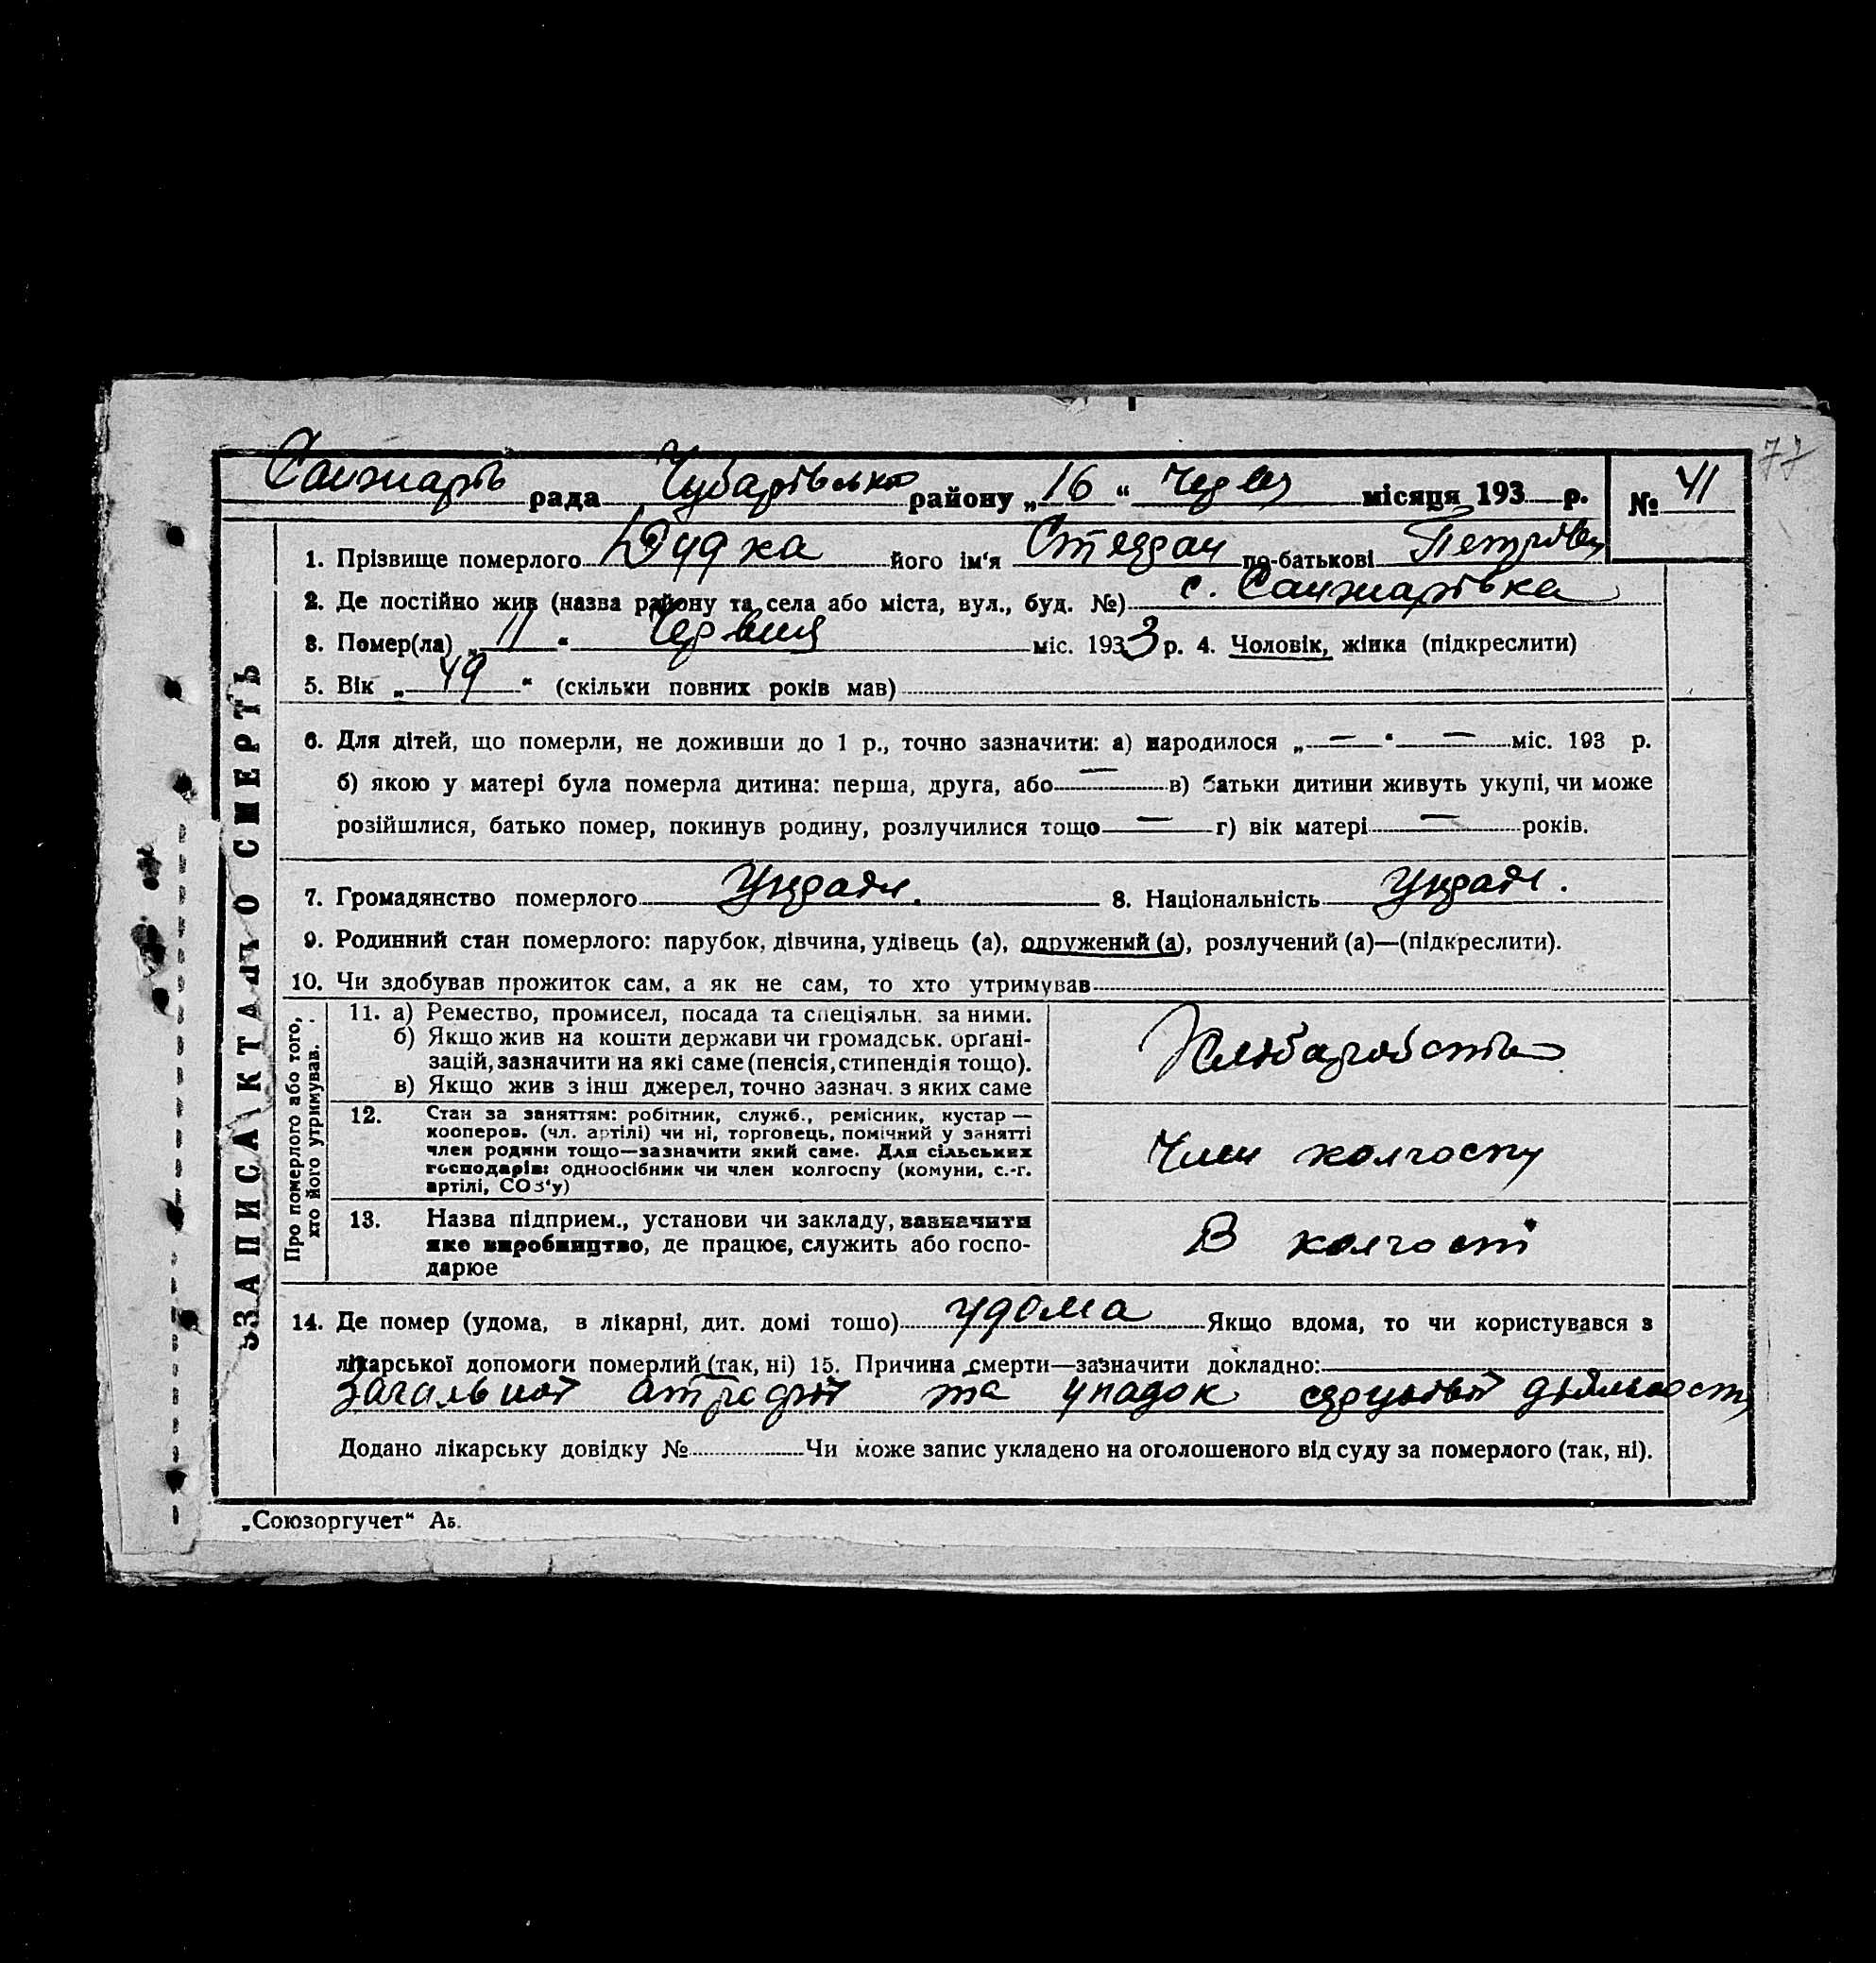 77
Санжарів рада Чубарівська району „16“ Червн місяця 193 р. № 41
1. Прізвище померлого Дудка його ім'я Стефан по-батькові Петрович
2. Де постійно жив (назва району та села або міста, вул., буд. №) с. Санжарівка
3. Помер(ла) „11“ Червня міс. 1933 р. 4. Чоловік, жінка (підкреслити)
5. Вік „49“ (скільки повних років мав)
6. Для дітей, що померли, не доживши до 1 р., точно зазначити: а) народилося „—“ — міс. 193 р.
б) якою у матері була померла дитина: перша, друга, або — в) батьки дитини живуть укупі, чи може
розійшлися, батько помер, покинув родину, розлучилися тощо — г) вік матері — років.
7. Громадянство померлого 8. Національність
9. Родинний стан померлого: парубок, дівчина, удівець (а), одружений (а), розлучений (а)—(підкреслити).
10. Чи здобував прожиток сам, а як не сам, то хто утримував
ЗАПИС АКТА О СМЕРТЬ
Про померлого або того,
хто його утримував.
11. а) Ремество, промисел, посада та спеціяльн. за ними.
б) Якщо жив на кошти держави чи громадськ. орґані-
зацій, зазначити на які саме (пенсія, стипендія тощо).
в) Якщо жив з інш джерел, точно зазнач. з яких саме
Хліборобство
12. Стан за заняттям: робітник, служб., ремісник, кустар —
кооперов. (чл. артілі) чи ні, торговець, помічний у занятті
член родини тощо—зазначити який саме. Для сільських
господарів: одноосібник чи член колгоспу (комуни, с.-г.
артілі, СОЗ'у)
Член колгоспу
13. Назва підприєм., установи чи закладу, зазначити
яке виробництво, де працює, служить або госпо-
дарює
В колгоспі
14. Де помер (удома, в лікарні, дит. домі тощо) удома Якщо вдома, то чи користувався з
лікарської допомоги померлий (так, ні) 15. Причина смерти—зазначити докладно:
Загальної атрофії та упадок серцевої діяльност
Додано лікарську довідку № Чи може запис укладено на оголошеного від суду за померлого (так, ні).
„Союзоргучет“ Аб.